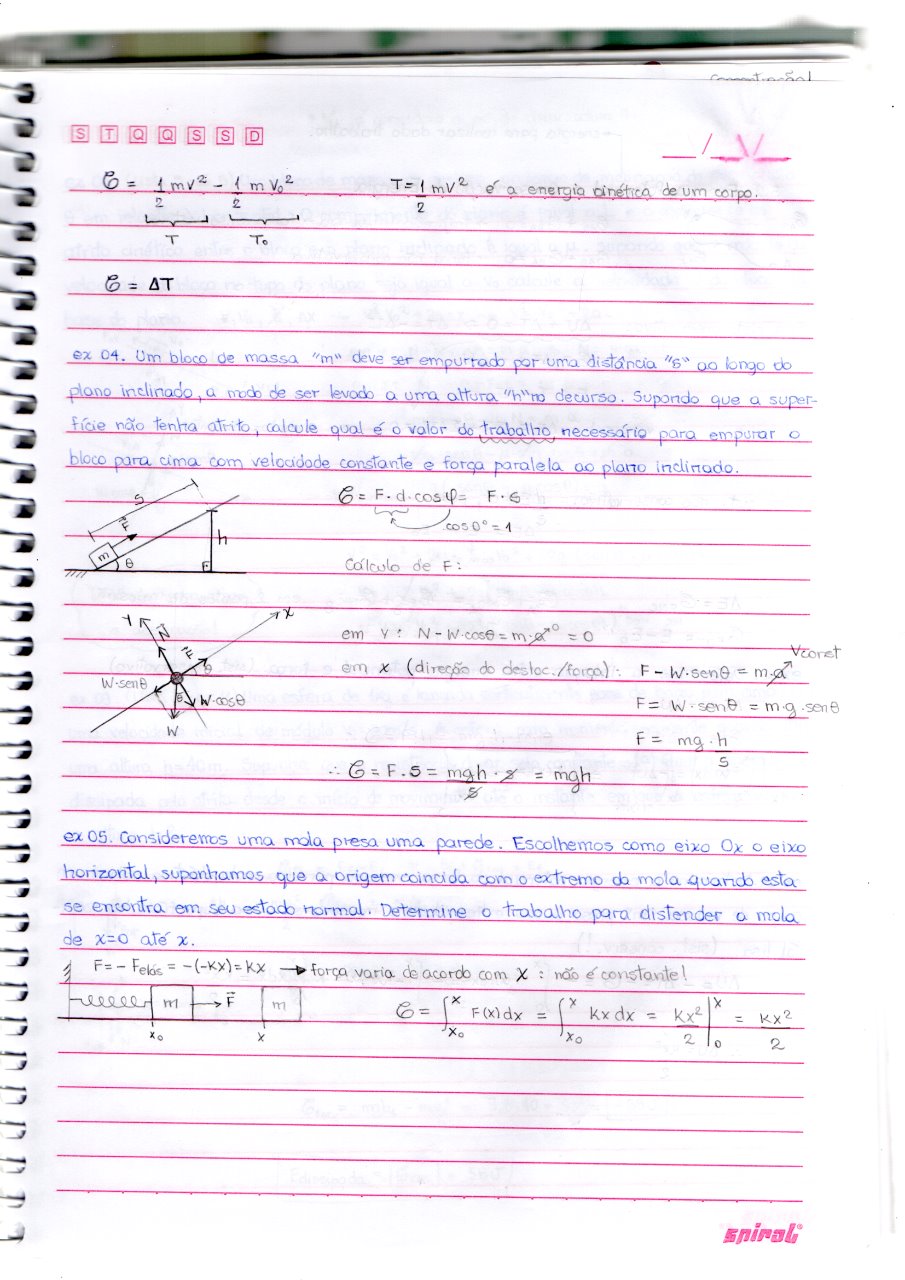 S T Q Q S S D
__/__/__
𝒞 = 1/2 mv² - 1/2 m v₀²
T T₀
T = 1/2 mv² é a energia cinética de um corpo.
𝒞 = ΔT
ex 04. Um bloco de massa "m" deve ser empurrado por uma distância "s" ao longo do
plano inclinado, a modo de ser levado a uma altura "h" no decurso. Supondo que a super-
fície não tenha atrito, calcule qual é o valor do trabalho necessário para empurar o
bloco para cima com velocidade constante e força paralela ao plano inclinado.
S
F
m
θ
h
𝒞 = F·d·cosφ = F·s
cos0° = 1
Cálculo de F:
Y
X
N
F
θ
W·senθ
W·cosθ
W
em Y: N - W·cosθ = m·a⁰ = 0
em x (direção do desloc./força): F - W·senθ = m·a Vconst
F = W·senθ = m·g·senθ
F = mg·h/s
∴ 𝒞 = F·S = mgh/s · s = mgh
ex 05. Consideremos uma mola presa uma parede. Escolhemos como eixo Ox o eixo
horizontal, suponhamos que a origem coincida com o extremo da mola quando esta
se encontra em seu estado normal. Determine o trabalho para distender a mola
de x=0 até x.
F = - Felás = -(-Kx) = Kx → força varia de acordo com X : não é constante!
m F m
x₀ x
𝒞 = ∫ₓ₀ˣ F(x)dx = ∫ₓ₀ˣ Kx dx = Kx²/2 |₀ˣ = Kx²/2
spiral®